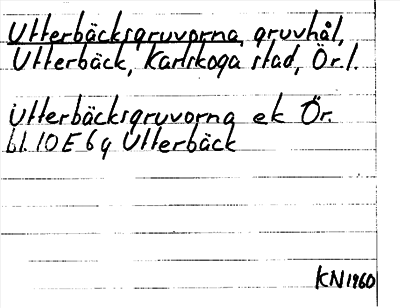 Utterbäcksgruvorna, gruvhål,
Utterbäck, Karlskoga stad, Ör. l.
Utterbäcksgruvorna ek Ör.
bl. 10E 6g Utterbäck
KN 1960